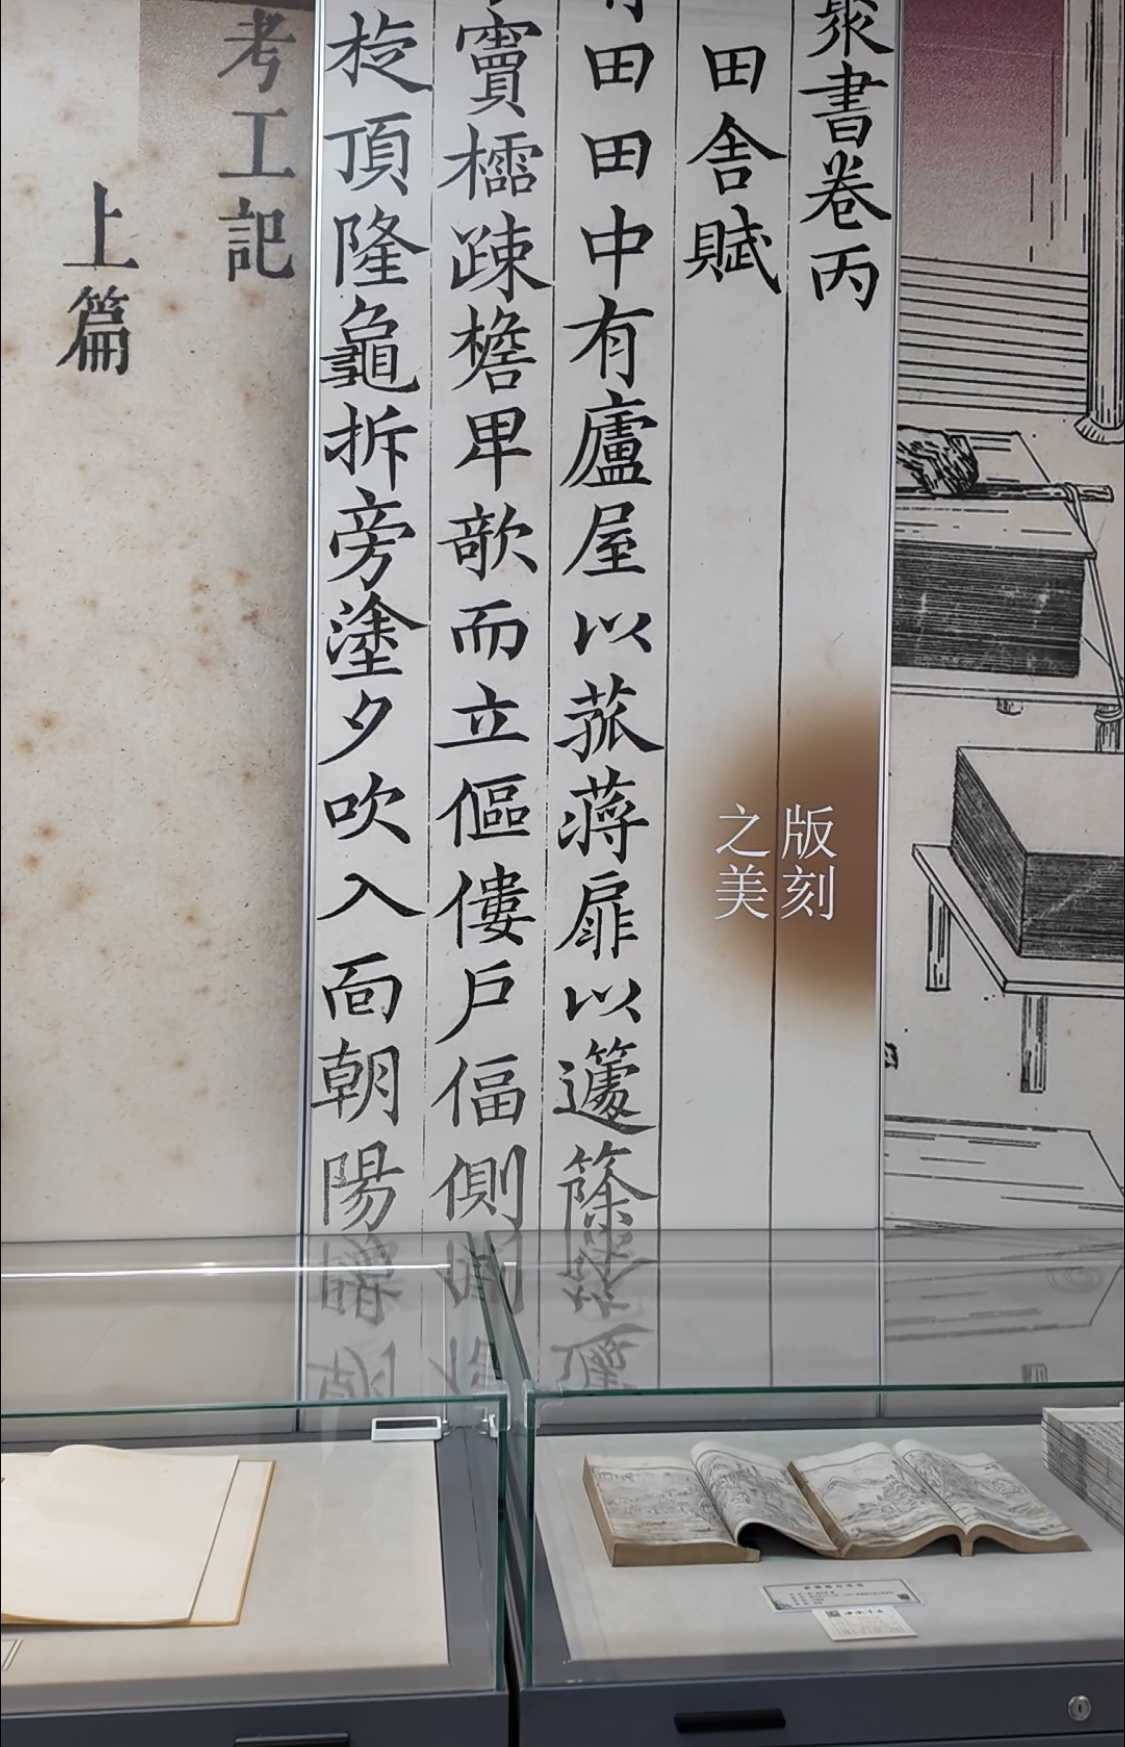 書卷丙
田舍賦
田田中有廬屋以菰蔣扉以籧篨
竇櫺疎檐卑欹而立傴僂戶偪側
旋頂隆龜拆旁塗夕吹入面朝陽
版刻
之美
考工記
上篇